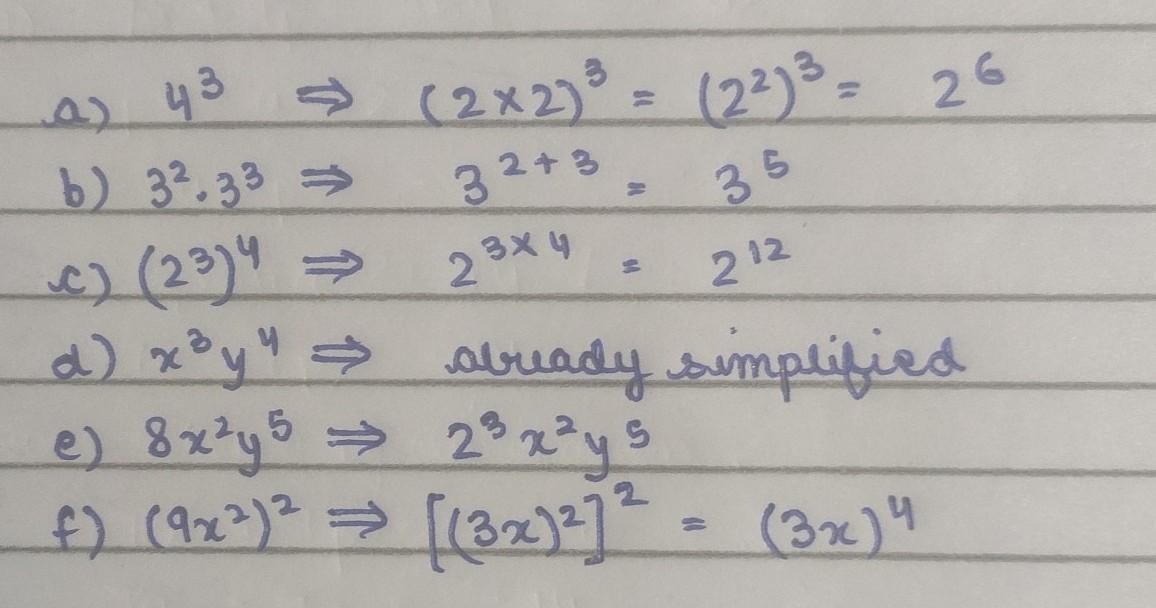 a) 4³ ⇒ (2×2)³ = (2²)³ = 2⁶
b) 3².3³ ⇒ 3²⁺³ = 3⁵
c) (2³)⁴ ⇒ 2³ˣ⁴ = 2¹²
d) x³y⁴ ⇒ already simplified
e) 8x²y⁵ ⇒ 2³x²y⁵
f) (9x²)² ⇒ [(3x)²]² = (3x)⁴